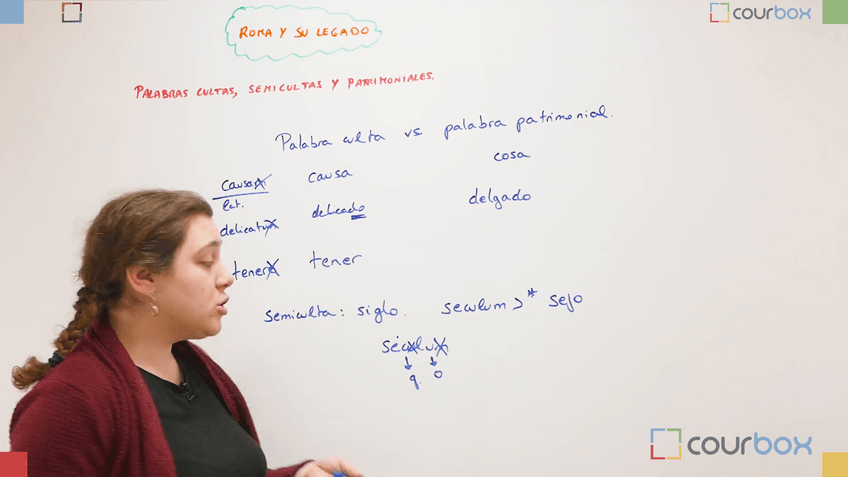 courbox
ROMA Y SU LEGADO
PALABRAS CULTAS, SEMICULTAS Y PATRIMONIALES.
Palabra culta vs. palabra patrimonial.
causam causa cosa
Lat.
delicatum delicado delgado
tenere tener
semiculta: siglo. seculum >* sejo
séculum
g. o
courbox